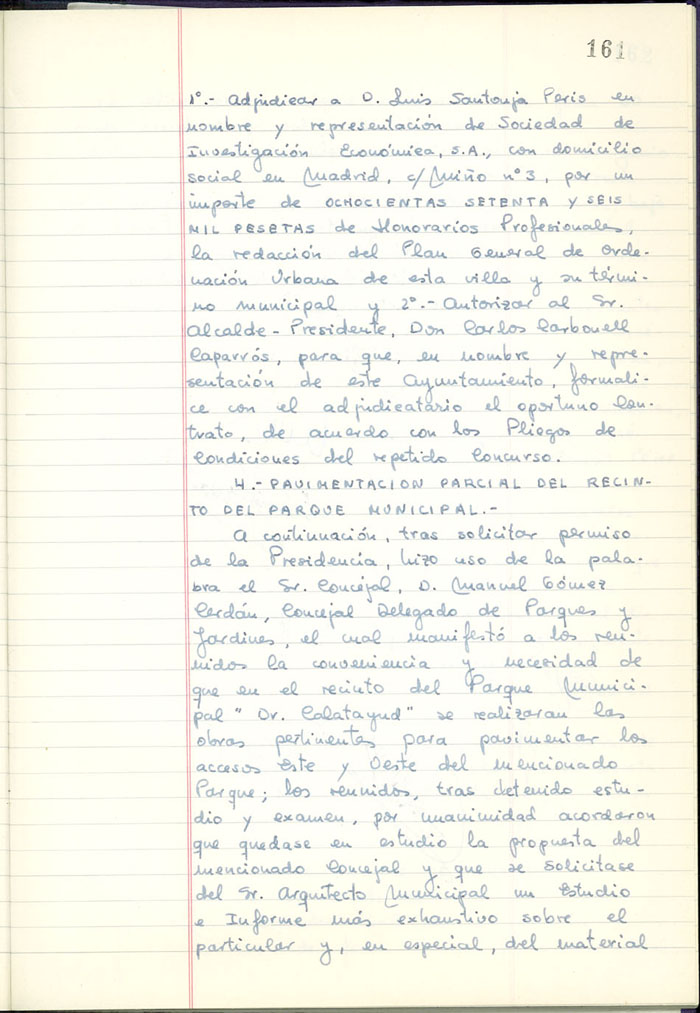 161
1º.- Adjudicar a D. Luis Santonja Peris en
nombre y representación de Sociedad de
Investigación Económica, S.A., con domicilio
social en Madrid, c/Miño nº 3, por un
importe de OCHOCIENTAS SETENTA Y SEIS
MIL PESETAS de Honorarios Profesionales,
la redacción del Plan General de Orde-
nación Urbana de esta villa y su térmi-
no municipal y 2º.- Autorizar al Sr.
Alcalde-Presidente, Don Carlos Carbonell
Caparrós, para que, en nombre y repre-
sentación de este Ayuntamiento, formali-
ce con el adjudicatario el oportuno Con-
trato, de acuerdo con los Pliegos de
Condiciones del repetido Concurso.
4.- PAVIMENTACION PARCIAL DEL RECIN-
TO DEL PARQUE MUNICIPAL.-
A continuación, tras solicitar permiso
de la Presidencia, hizo uso de la pala-
bra el Sr. Concejal, D. Manuel Gómez
Cerdán, Concejal Delegado de Parques y
Jardines, el cual manifestó a los reu-
nidos la conveniencia y necesidad de
que en el recinto del Parque Munici-
pal "Dr. Calatayud" se realizaran las
obras pertinentes para pavimentar los
accesos Este y Oeste del mencionado
Parque; los reunidos, tras detenido estu-
dio y examen, por unanimidad acordaron
que quedase en estudio la propuesta del
mencionado Concejal y que se solicitase
del Sr. Arquitecto Municipal un Estudio
e Informe más exhaustivo sobre el
particular y, en especial, del material